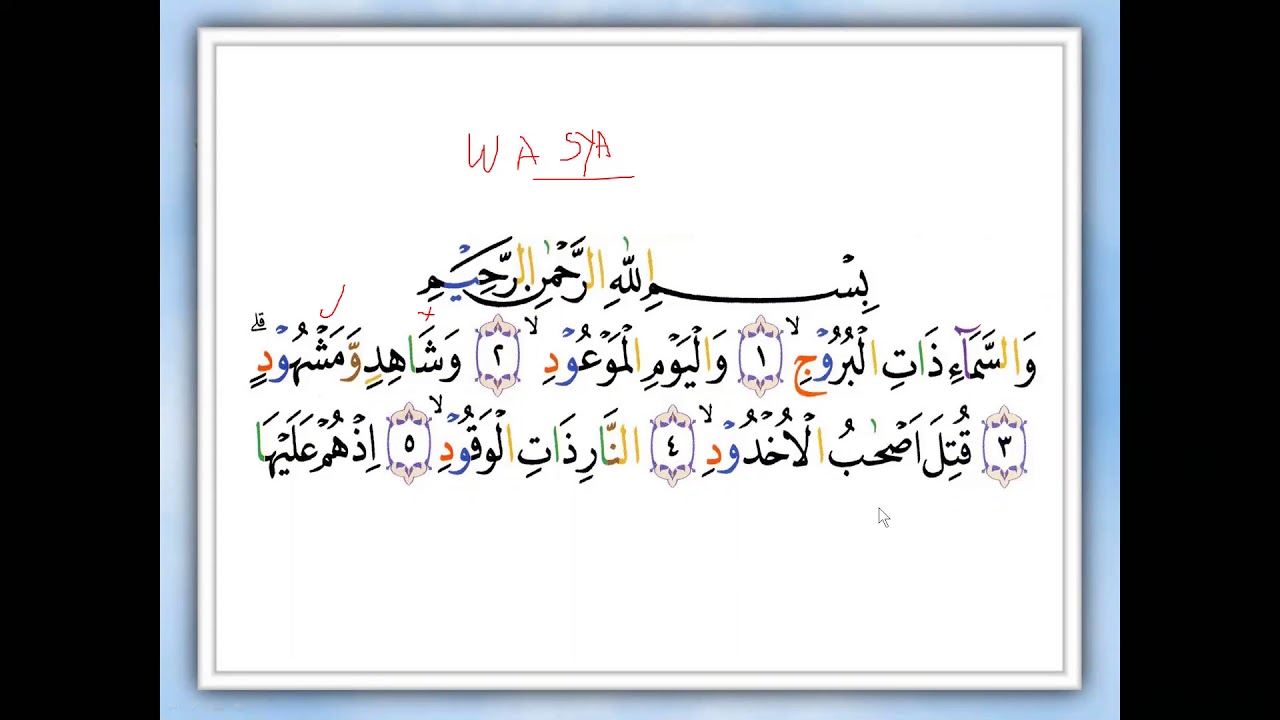 WA SYA
بِسْمِ اللّٰهِ الرَّحْمٰنِ الرَّحِيْمِ
وَالسَّمَاۤءِ ذَاتِ الْبُرُوْجِۙ ١ وَالْيَوْمِ الْمَوْعُوْدِۙ ٢ وَشَاهِدٍ وَّمَشْهُوْدٍۗ
٣ قُتِلَ اَصْحٰبُ الْاُخْدُوْدِۙ ٤ النَّارِ ذَاتِ الْوَقُوْدِۙ ٥ اِذْ هُمْ عَلَيْهَا